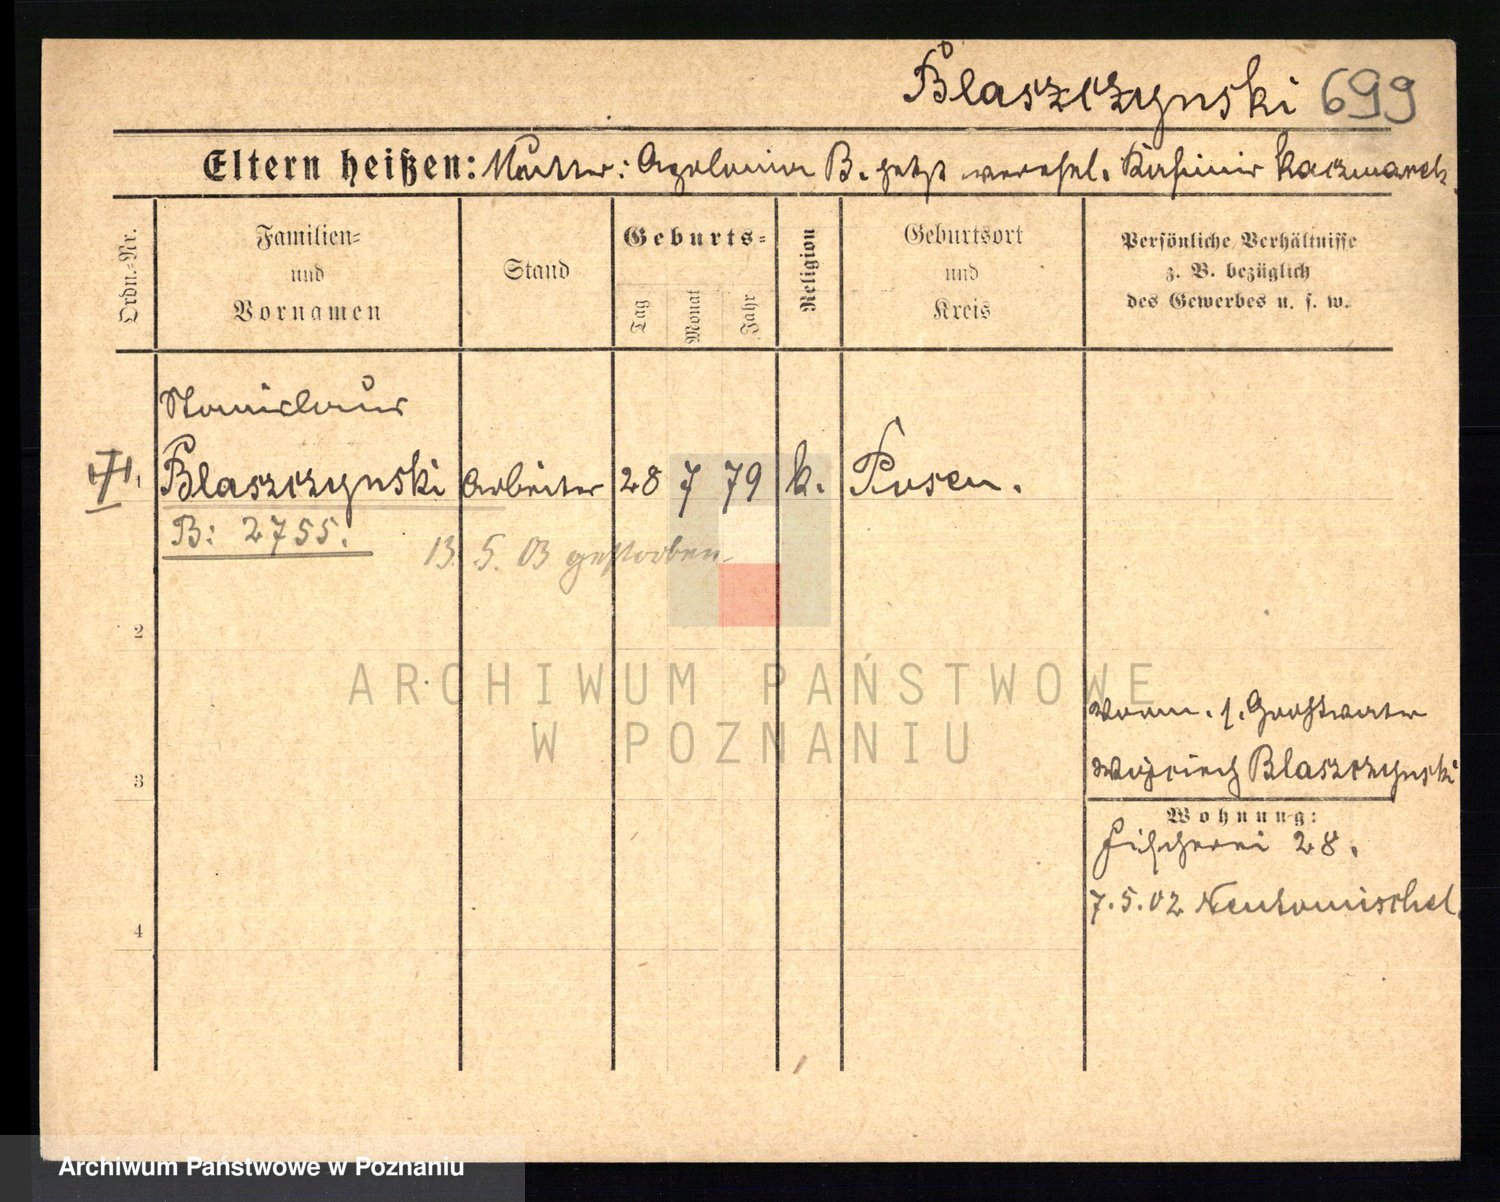 Blaszczynski 699
Eltern heißen: Mutter: Apolonia B. jetzt verehel. Kasimir Kaczmarek
Ordn.-Nr.
Familien-
und
Vornamen
Stand
Geburts-
Tag
Monat
Jahr
Religion
Geburtsort
und
Kreis
Persönliche Verhältnisse
z. B. bezüglich
des Gewerbes u. s. w.
Stanislaus
Blaszczynski Arbeiter 28 7 79 k. Posen.
B: 2755.
13. 5. 03 gestorben
2
3
4
Vorm. s. Großvater
Wojciech Blaszczynski
Wohnung:
Fischerei 28.
7.5.02 Neutomischel.
ARCHIWUM PAŃSTWOWE
W POZNANIU
Archiwum Państwowe w Poznaniu